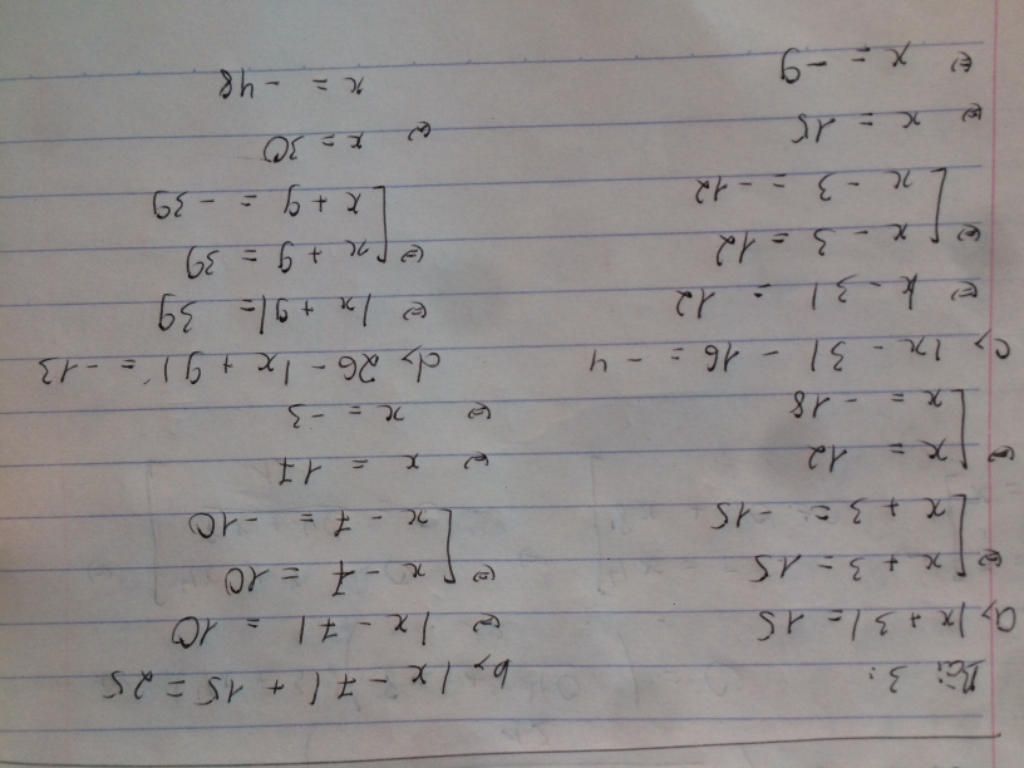 Bài 3:
a, |x + 3| = 15
⇔ [ x + 3 = 15
[ x + 3 = -15
⇔ [ x = 12
[ x = -18
b, |x - 7| + 15 = 25
⇔ |x - 7| = 10
⇔ [ x - 7 = 10
[ x - 7 = -10
⇔ x = 17
⇔ x = -3
c, |x - 3| - 16 = -4
⇔ |x - 3| = 12
⇔ [ x - 3 = 12
[ x - 3 = -12
⇔ x = 15
⇔ x = -9
d, 26 - |x + 9| = -13
⇔ |x + 9| = 39
⇔ [ x + 9 = 39
[ x + 9 = -39
⇔ x = 30
x = -48